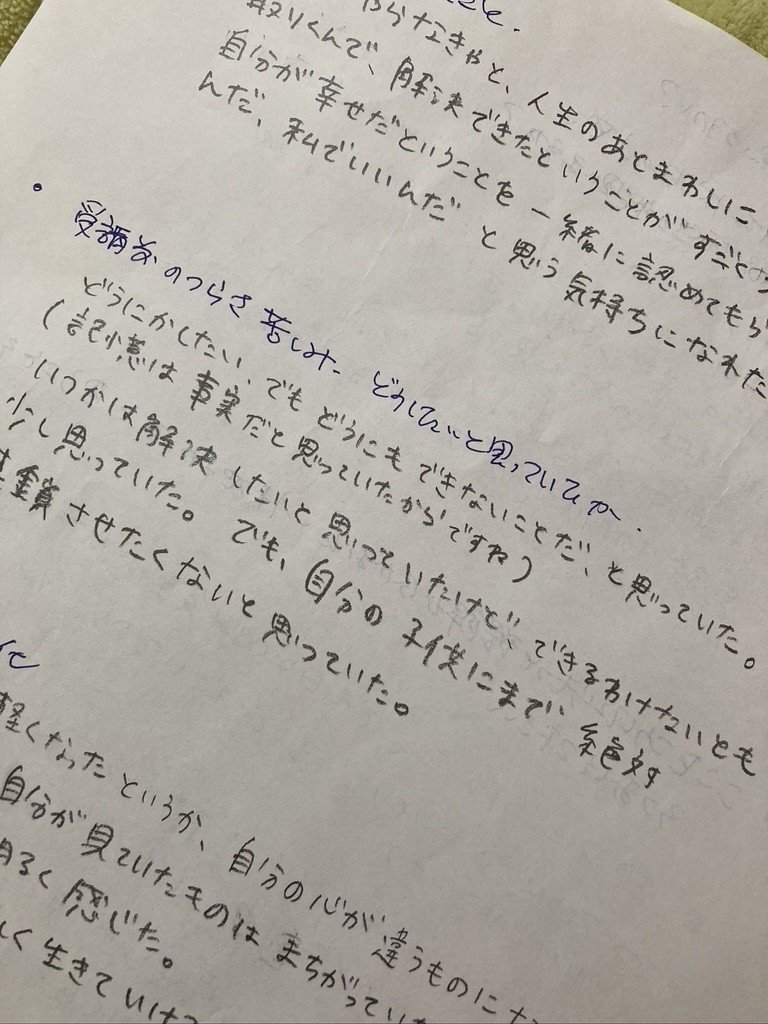 やらなきゃと、人生のあとまわしに
取りくんで、解決できたということがすごく
自分が幸せだということを一緒に認めてもら
んだ、私でいいんだ と思う気持ちになれた
・受講前のつらさ苦しみ どうしたいと思っていたか.
どうにかしたい、でもどうにもできないことだ、と思っていた。
(記憶は事実だと思っていたからですね)
いつかは解決したいと思っていたけど、できるわけないとも
少し思っていた。 でも、自分の子供にまで 絶対
連鎖させたくないと思っていた。
軽くなったというか、自分の心が違うものにな
自分が見ていたものはまちがってい
明るく感じた。
しく生きていけ